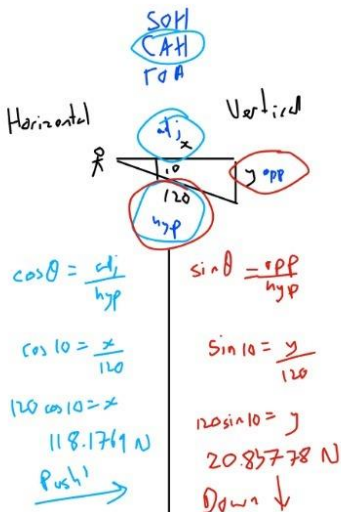 SOH
CAH
TOA
Horizontal
Vertical
adj
x
10
y opp
120
hyp
cosθ = adj/hyp
cos 10 = x/120
120 cos 10 = x
118.1769 N
Push!
sinθ = opp/hyp
Sin 10 = y/120
120 sin 10 = y
20.83778 N
Down